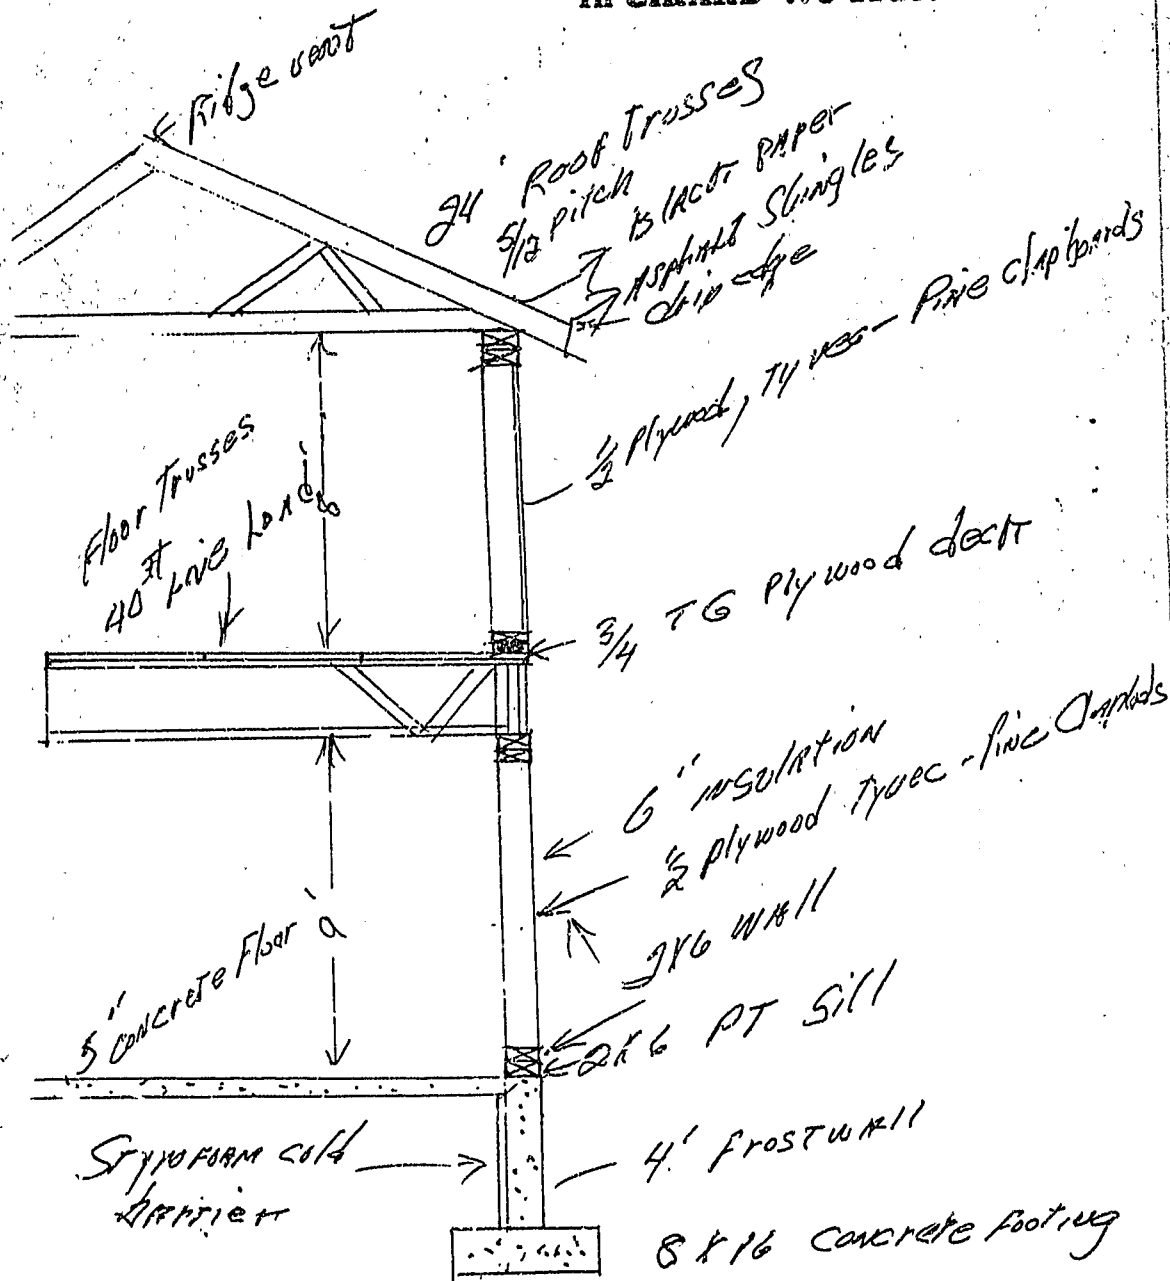 Ridge vent
24' Roof Trusses
5/12 pitch
Black PAPER
ASphalt Shingles
drip edge
1/2 Plywood, Tyvec - Pine clapboards
Floor Trusses
40# Live Load
8'
3/4 TG Plywood deck
6" INSULATION
1/2 Plywood Tyvec - Pine Clapbds
2x6 WALL
2x6 PT Sill
5" CONCRETE Floor
9'
Styrofoam cold
barrier
4' FROSTWALL
8 x 16 concrete Footing